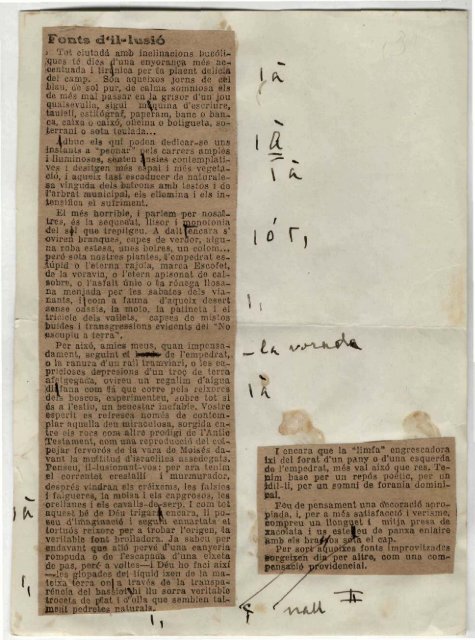 Fonts d'il-lusió
Tot ciutadà amb inclinacions bucòli-
ques té dies d'una enyorança més ac-
centuada i tirànica per la plaent delícia
del camp. Són aqueixos jorns de cel
blau, de sol pur, de calma somniosa els
de més mal passar en la grisor d'un jou
qualsevulla, sigui màquina d'escriure,
taulell, estilògraf, paperam, banc o ban-
ca, caixa o caixó, oficina o botigueta, so-
terrani o sota teulada...
Adhuc els qui poden dedicar-se uns
instants a "peonar" pels carrers amples
i lluminosos, senten ànsies contemplati-
ves i desitgen més espai i més vegeta-
ció, i aqueix tast escadusser de naturale-
sa vinguda dels balcons amb testos i de
l'arbrat municipal, els ullomina i els in-
tensifica el sufriment.
El més horrible, i parlem per nosal-
tres, és la sequedat, llisor i monotonia
del sòl que trepitgeu. A dalt encara s'
oviren branques, capes de verdor, algu-
na roba estesa, unes boires, un colom...
però sota nostres plantes, l'empedrat es-
túpid o l'eterna rajola, marca Escofet,
de la voravia, o l'etern apisonat de cal-
sobre, o l'asfalt únic o la rònega llosa-
na menjada per les sabates dels via-
nants, i com a fauna d'aqueix desert
sense oàssis, la moto, la patineta i el
tricicle dels vailets, capses de mistos
buides i transgressions evidents del "No
escupiu a terra".
Per això, amics meus, quan impensa-
dament, seguint el de l'empedrat,
o la ranura d'un raïl tramviari, o les ca-
pricioses depresions d'un troç de terra
afeegada, ovireu un regalim d'aigua
diàfana com la que corre pels reixores
dels boscos, experimenteu, sobre tot si
és a l'estiu, un benestar inefable. Vostre
esperit es refresca només de contem-
plar aquella deu miraculosa, sorgida en-
tre els rocs com altre prodigi de l'Antic
Testament, com una reproducció del col-
pejar ferrorós de la vara de Moisès da-
vant la multitud d'israelites assedegats.
Penseu, il-lusionant-vos: per ara tenim
el correntet cresialli i murmurador,
després vindran els créixems, les falsies
i falgueres, la molsa i els capgrosos, les
orellanes i els cavalls-de-serp. I com tot
aquest bé de Déu trigarà encara, li po-
seu d'imaginació i seguiu enllartats el
tortuós reixore per a trobar l'orígen, la
veritable font brolladora. Ja sabeu per
endavant que allò prové d'una canyeria
rompuda o de l'escapada d'una eixeta
de pas, però a voltes—i Déu ho faci així
—les glopades del líquid ixen de la ma-
teixa terra on a través de la transpa-
rència del bassiot hi llu sorra veritable
trocets de plat i d'olla que semblen tal-
ment pedretes naturals.
I encara que la "limfa" engrescadora
ixi del forat d'un pany o d'una esquerda
de l'empedrat, més val això que res. Te-
nim base per un repòs poètic, per un
idil-li, per un somni de forania domini-
cal.
Féu de pensament una decoració apro-
piada, i, per a més satisfacció i verisme,
compreu un llonguet i mitja presa de
xacolata i us esteneu de panxa enlaire
amb els braços sota el cap.
Per sort aqueixes fonts improvitzades
sorgeixen dia per altre, com una com-
pensació providencial.
/à
/à
/à
/ó r,
/,
- la vorada
/à
/à
/,